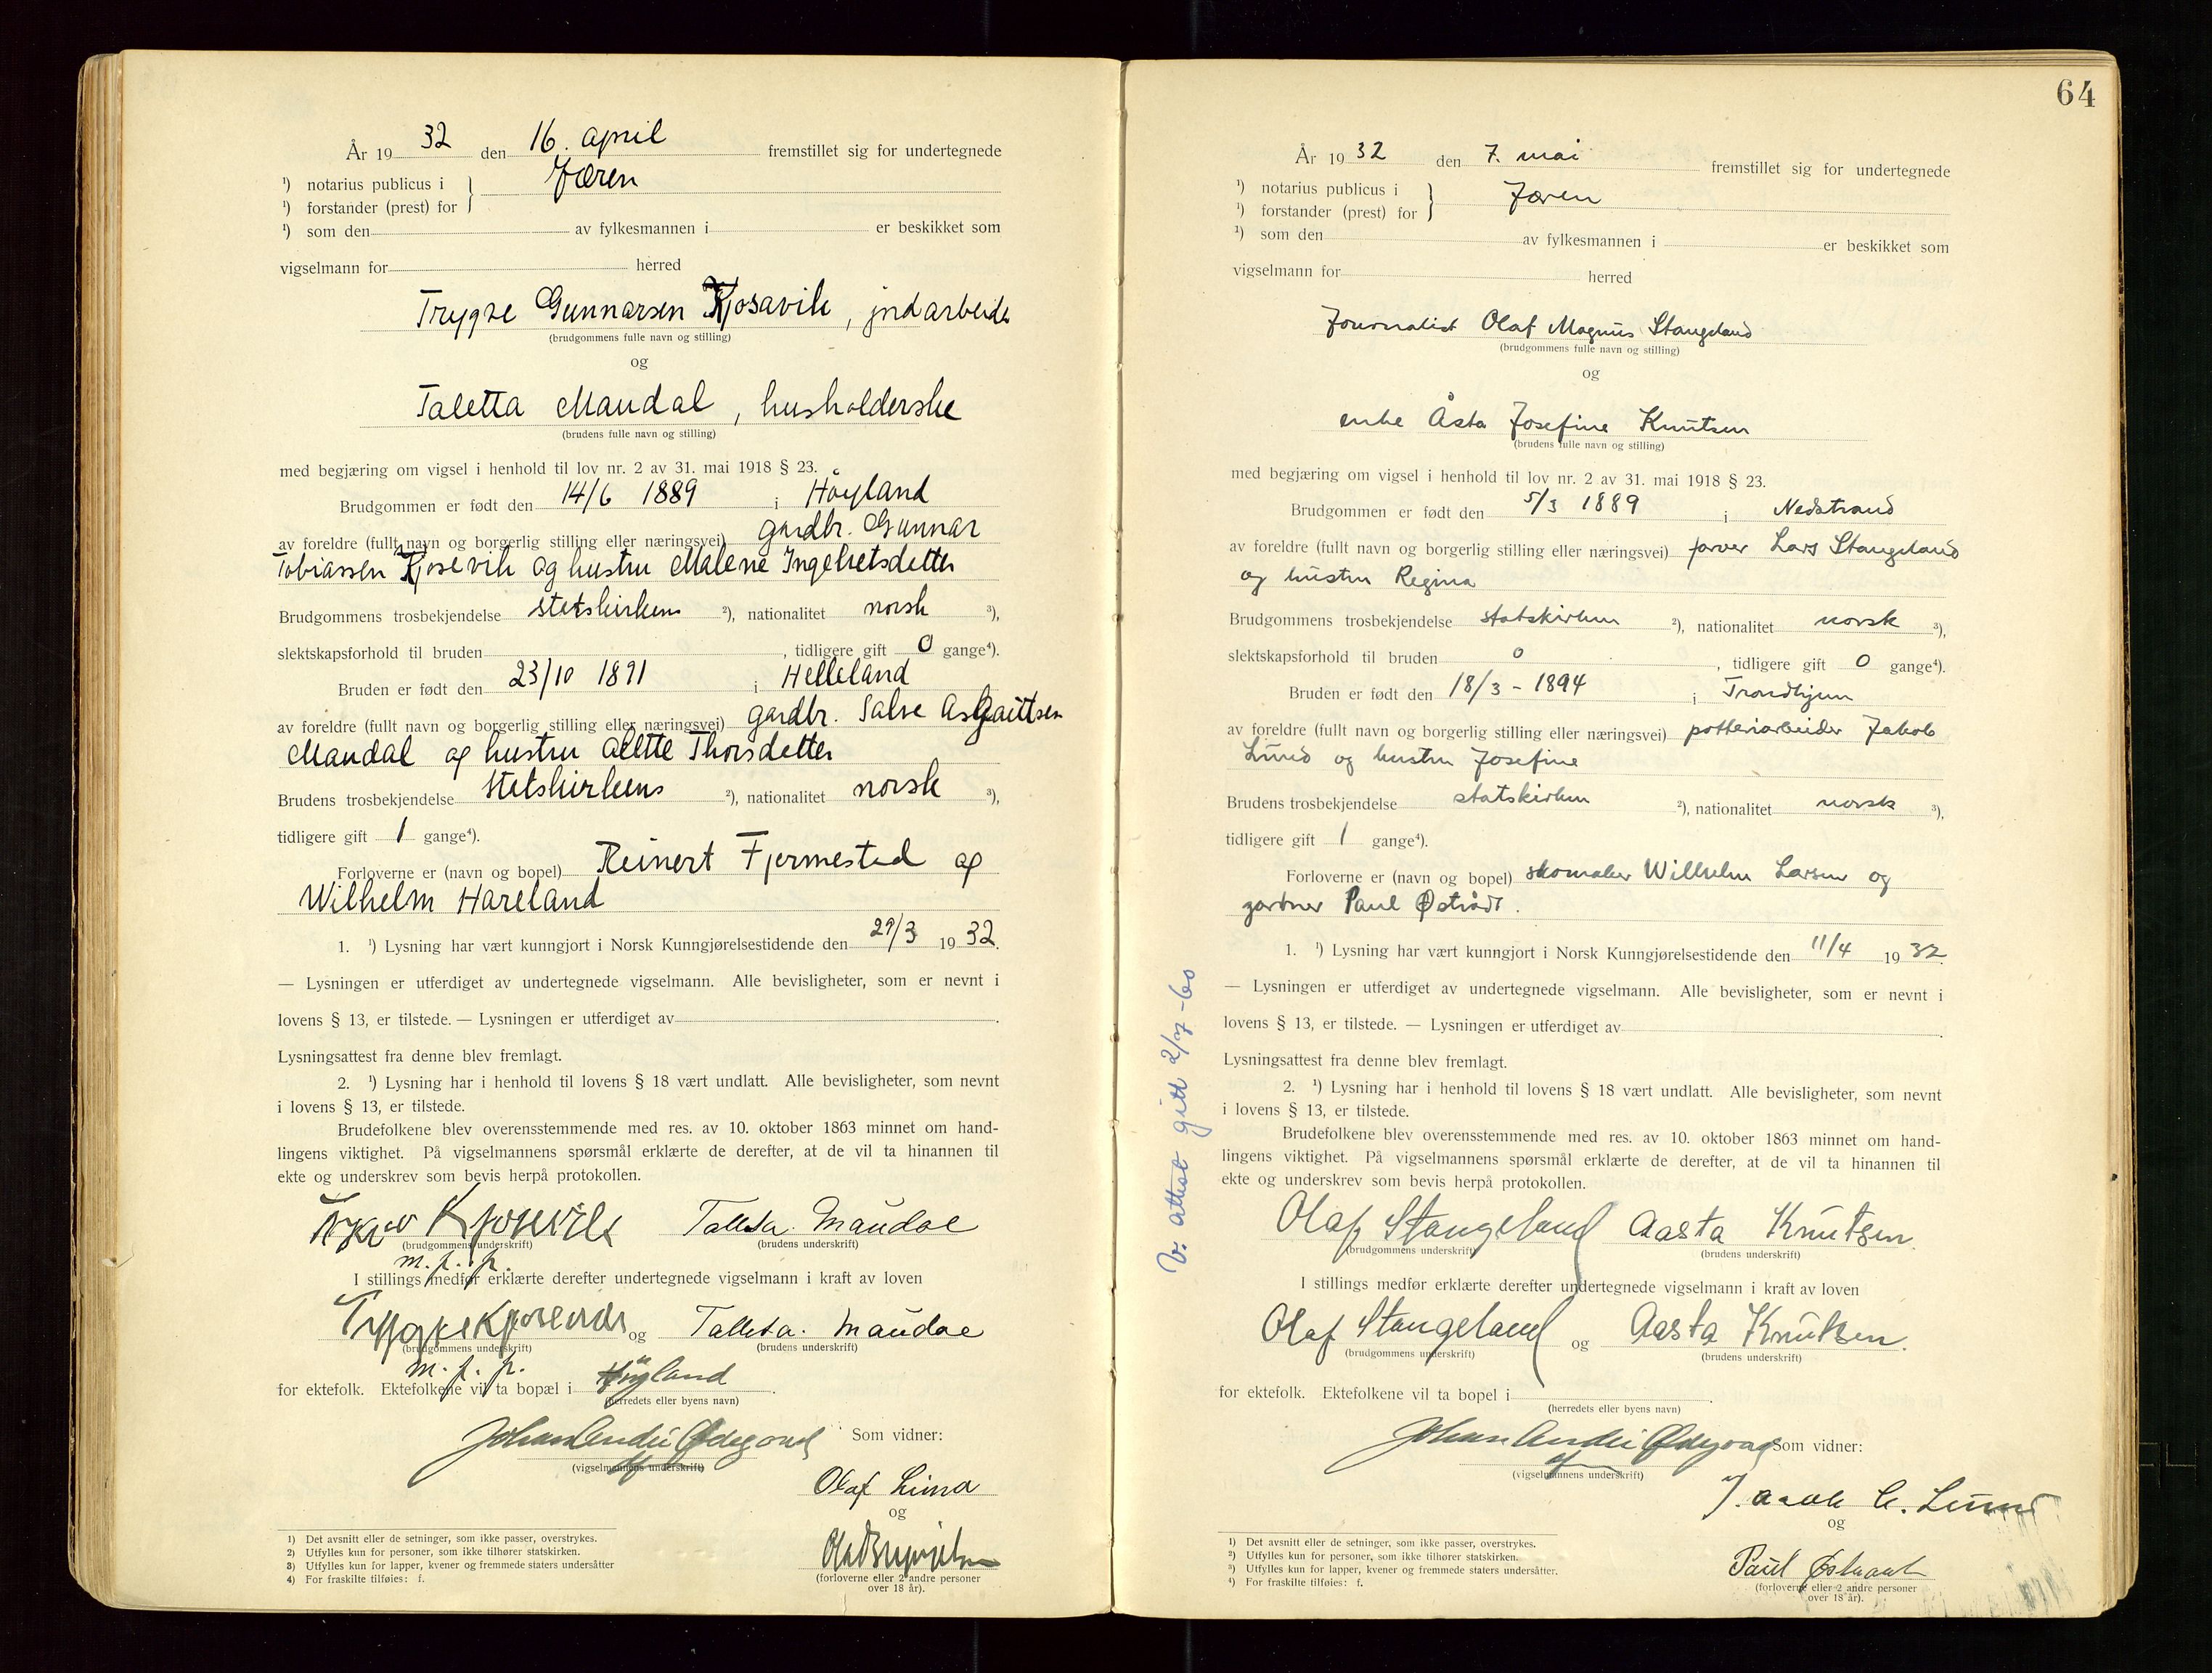 År 19 32 den 16. april fremstillet sig for undertegnede
¹) notarius publicus i } Jæren
¹) forstander (prest) for
¹) som den av fylkesmannen i er beskikket som
vigselmann for herred
Trygve Gunnarsen Kjosavik, jordarbeider
(brudgommens fulle navn og stilling)
og
Taletta Maudal, husholderske
(brudens fulle navn og stilling)
med begjæring om vigsel i henhold til lov nr. 2 av 31. mai 1918 § 23.
Brudgommen er født den 14/6 1889 i Høyland
av foreldre (fullt navn og borgerlig stilling eller næringsvei) gardbr. Gunnar
Tobiassen Kjosevik og hustru Malene
Brudgommens trosbekjendelse statskirken ²), nationalitet norsk ³),
slektskapsforhold til bruden , tidligere gift 0 gange⁴).
Bruden er født den 23/10 1891 i Helleland
av foreldre (fullt navn og borgerlig stilling eller næringsvei) gardbr. Salve Asgautsen
Maudal og hustru Alette Thorsdatter
Brudens trosbekjendelse statskirkens ²), nationalitet norsk ³),
tidligere gift 1 gange⁴).
Forloverne er (navn og bopel) Reinert Fjermestad og
Wilhelm Hareland
1. ¹) Lysning har vært kunngjort i Norsk Kunngjørelsestidende den 29/3 19 32.
— Lysningen er utferdiget av undertegnede vigselmann. Alle bevisligheter, som er nevnt i
lovens § 13, er tilstede. — Lysningen er utferdiget av .
Lysningsattest fra denne blev fremlagt.
2. ¹) Lysning har i henhold til lovens § 18 vært undlatt. Alle bevisligheter, som nevnt
i lovens § 13, er tilstede.
Brudefolkene blev overensstemmende med res. av 10. oktober 1863 minnet om hand-
lingens viktighet. På vigselmannens spørsmål erklærte de derefter, at de vil ta hinannen til
ekte og underskrev som bevis herpå protokollen.
Kjosevik Talleta. Maudal
(brudgommens underskrift) (brudens underskrift)
m. f. p.
I stillings medfør erklærte derefter undertegnede vigselmann i kraft av loven
Trygve Kjosevik og Talleta. Maudal
(brudgommens underskrift) (brudens underskrift)
m. f. p.
for ektefolk. Ektefolkene vil ta bopæl i Høyland .
(herredets eller byens navn)
Johan Andre Ødegaard Som vidner:
(vigselmannens underskrift)
Olaf Lima
og
(forloverne eller 2 andre personer
over 18 år).
1) Det avsnitt eller de setninger, som ikke passer, overstrykes.
2) Utfylles kun for personer, som ikke tilhører statskirken.
3) Utfylles kun for lapper, kvener og fremmede staters undersåtter
4) For fraskilte tilføies: f.
64
År 19 32 den 7. mai fremstillet sig for undertegnede
¹) notarius publicus i } Jæren
¹) forstander (prest) for
¹) som den av fylkesmannen i er beskikket som
vigselmann for herred
Journalist Olaf Magnus Stangeland
(brudgommens fulle navn og stilling)
og
enke Åsta Josefine Knutsen
(brudens fulle navn og stilling)
med begjæring om vigsel i henhold til lov nr. 2 av 31. mai 1918 § 23.
Brudgommen er født den 5/3 1889 i Nedstrand
av foreldre (fullt navn og borgerlig stilling eller næringsvei) farver Lars Stangeland
og hustru Regina
Brudgommens trosbekjendelse statskirken ²), nationalitet norsk ³),
slektskapsforhold til bruden 0 , tidligere gift 0 gange⁴).
Bruden er født den 18/3 - 1894 i Trondhjem
av foreldre (fullt navn og borgerlig stilling eller næringsvei) potteriarbeider Jakob
Lund og hustru Josefine
Brudens trosbekjendelse statskirken ²), nationalitet norsk ³),
tidligere gift 1 gange⁴).
Forloverne er (navn og bopel) skomaker Willhelm Larsen og
gartner Paul Østrådt.
1. ¹) Lysning har vært kunngjort i Norsk Kunngjørelsestidende den 11/4 19 32.
— Lysningen er utferdiget av undertegnede vigselmann. Alle bevisligheter, som er nevnt i
lovens § 13, er tilstede. — Lysningen er utferdiget av .
Lysningsattest fra denne blev fremlagt.
2. ¹) Lysning har i henhold til lovens § 18 vært undlatt. Alle bevisligheter, som nevnt
i lovens § 13, er tilstede.
Brudefolkene blev overensstemmende med res. av 10. oktober 1863 minnet om hand-
lingens viktighet. På vigselmannens spørsmål erklærte de derefter, at de vil ta hinannen til
ekte og underskrev som bevis herpå protokollen.
Olaf Stangeland Aasta Knutsen.
(brudgommens underskrift) (brudens underskrift)
I stillings medfør erklærte derefter undertegnede vigselmann i kraft av loven
Olaf Stangeland og Aasta Knutsen.
(brudgommens underskrift) (brudens underskrift)
for ektefolk. Ektefolkene vil ta bopel i .
(herredets eller byens navn)
Johan Andre Ødegaard Som vidner:
(vigselmannens underskrift)
Lund
og
Paul Østraadt
(forloverne eller 2 andre personer
over 18 år).
¹) Det avsnitt eller de setninger, som ikke passer, overstrykes.
²) Utfylles kun for personer, som ikke tilhører statskirken.
³) Utfylles kun for lapper, kvener og fremmede staters undersåtter.
⁴) For fraskilte tilføies: f.
V. attest gitt 2/7 -60